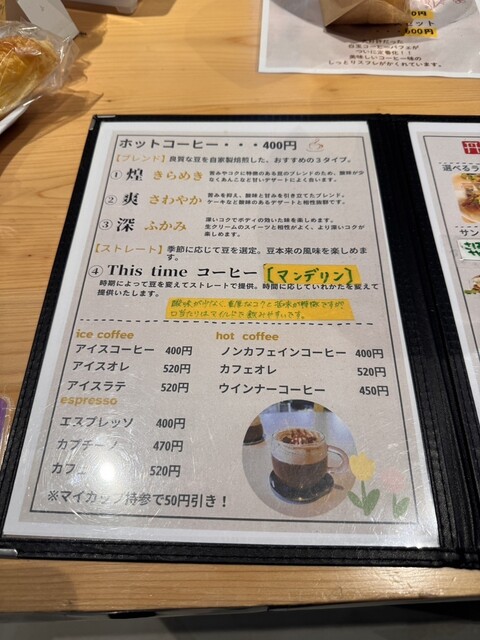 00円
セット
600円
ついに定番化！！
美味しいコーヒー味の
しっとりスフレがかくれています。
ホットコーヒー・・・400円
【ブレンド】良質な豆を自家製焙煎した、おすすめの３タイプ。
① 煌 きらめき
苦みやコクに特徴のある豆のブレンドのため、酸味が少
なくあんこなど甘いデザートによく合います。
② 爽 さわやか
苦みを抑え、酸味と甘みを引き立てたブレンド。
ケーキなど酸味のあるデザートと相性抜群です。
③ 深 ふかみ
深いコクでボディの効いた味を楽しめます。
生クリームのスイーツと相性がよく、より深いコクが
楽しめます。
【ストレート】季節に応じて豆を選定。豆本来の風味を楽しめま
す。
④ This time コーヒー【マンデリン】
時期によって豆を変えてストレートで提供。時間に応じていれかたを変えて
提供いたします。
酸味が少なく、重厚なコクと苦味が特徴ですが
口当たりはマイルドで飲みやすいです。
ice coffee
アイスコーヒー 400円
アイスオレ 520円
アイスラテ 520円
hot coffee
ノンカフェインコーヒー 400円
カフェオレ 520円
ウインナーコーヒー 450円
espresso
エスプレッソ 400円
カプチーノ 470円
カフェ 520円
※マイカップ持参で50円引き！
選べるラ
サン